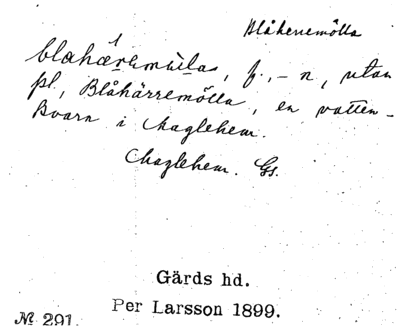 Blåherremölla
blåhæremùla, f., -n, utan
pl., Blåhärremölla, en vatten-
kvarn i Maglehem.
Maglehem. Gs.
Gärds hd.
Per Larsson 1899.
№ 291.